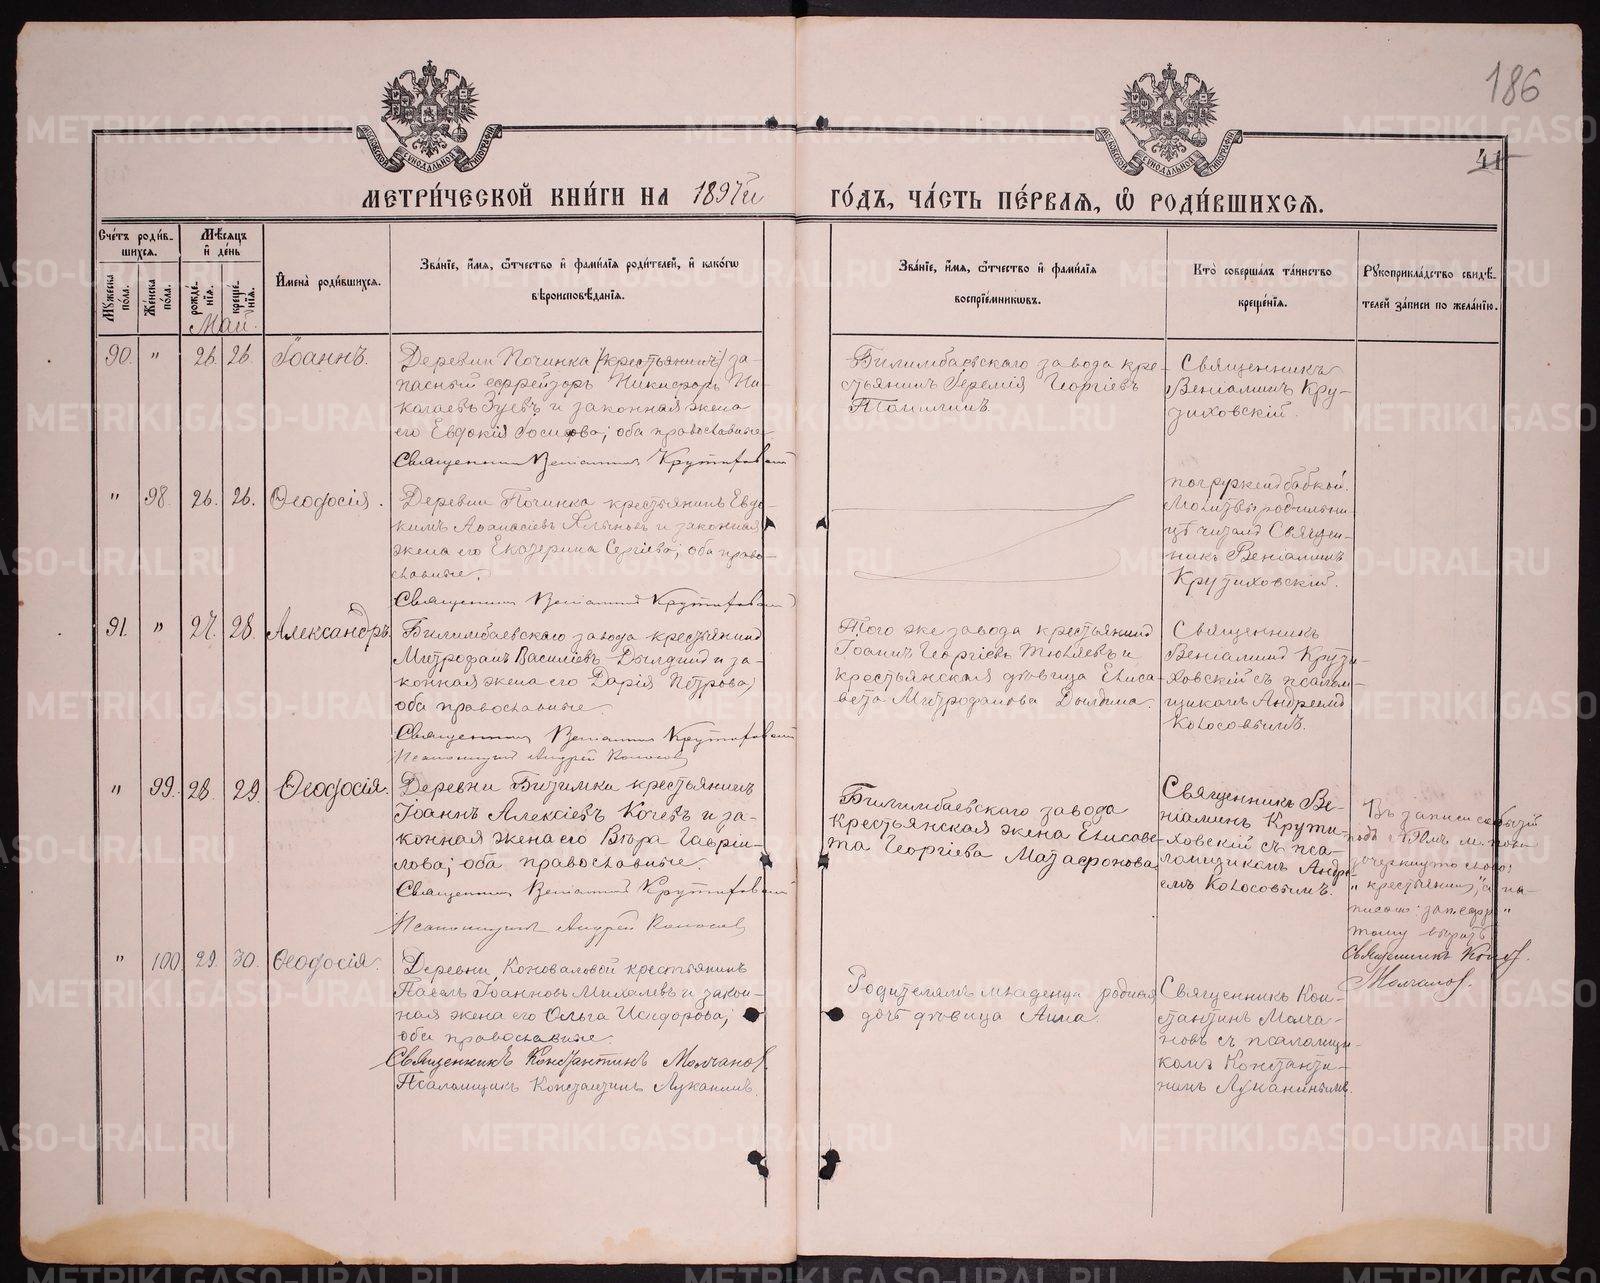 186
41
МЕТРИ́ЧЕСКОЙ КНИ́ГИ НА 1897й ГО́ДЪ, ЧА́СТЬ ПЕ́РВАЯ, Ѡ҆ РОДИ́ВШИХСЯ.
Сче́тъ роди́в-
шихся.
Мѣ́сяцъ
и҆ де́нь
Мꙋ́жеска по́ла.
Же́нска по́ла.
рожде́-
нїя.
креще́-
нїя.
И҆мена̀ роди́вшихся.
Зва́нїе, и҆́мя, ѻ҆́тчество и҆ фами́лїя роди́телей, и҆ како́гѡ
вѣроисповѣ́данїя.
Зва́нїе, и҆́мя, ѻ҆́тчество и҆ фами́лїя
воспрїе́мникѡвъ.
Кто̀ соверша́лъ та́инство
креще́нїя.
Рꙋкоприкла́дство свидѣ́-
телей за́писи по жела́нїю.
Май.
90. " 26. 26. Іоаннъ.
Деревни Починка (крестьянинъ) за-
пасный ефрейторъ Никифоръ Ни-
колаевъ Зуевъ и законная жена
его Евдокія Іосифова; оба православные.
Священникъ Веніаминъ Крутиховскій
Билимбаевскаго завода кре-
стьянинъ Іеремія Георгіевъ
Священникъ
Веніаминъ Кру-
тиховскій.
" 98. 26. 26. Ѳеодосія.
Деревни Починка крестьянинъ Евдо-
кимъ Аѳанасіевъ и законная
жена его Екатерина Сергіева; оба право-
славные.
Священникъ Веніаминъ Крутиховскій
погружен бабкой.
Молитвы родильни-
цѣ читалъ Священ-
никъ Веніаминъ
Крутиховскій.
91. " 27. 28. Александръ.
Билимбаевскаго завода крестьянинъ
Митрофанъ Василіевъ Дылдинъ и за-
конная жена его Дарія Петрова;
оба православные.
Священникъ Веніаминъ Крутиховскій
Псаломщикъ Андрей Колосовъ
Того же завода крестьянинъ
Іоаннъ Георгіевъ и
крестьянская дѣвица Елиса-
вета Митрофанова Дылдина.
Священникъ
Веніаминъ Крути-
ховскій съ псалом-
щикомъ Андреемъ
Колосовымъ.
" 99. 28. 29. Ѳеодосія.
Деревни Битимки крестьянинъ
Іоаннъ Алексіевъ Кочевъ и за-
конная жена его Вѣра Гавріи-
лова; оба православные.
Священникъ Веніаминъ Крутиховскій
Псаломщикъ Андрей Колосовъ
Билимбаевскаго завода
крестьянская жена Елисаве-
та Георгіева Матафонова.
Священникъ Ве-
ніаминъ Крути-
ховскій съ пса-
ломщикомъ Андре-
емъ Колосовымъ.
Въ записи
подъ № 90мъ
зачеркнуто слово:
"крестьянинъ", а на-
писано:
Священникъ Конст.
Молчановъ.
" 100. 29. 30. Ѳеодосія.
Деревни Коноваловой крестьянинъ
Павелъ Іоанновъ Михалевъ и закон-
ная жена его Ольга Исидорова;
оба православные.
Священникъ Константинъ Молчановъ.
Псаломщикъ Константинъ Луканинъ.
Родителямъ младенца родная
дочь дѣвица Анна.
Священникъ Кон-
стантинъ Молча-
новъ съ псаломщи-
комъ Константи-
номъ Луканинымъ.